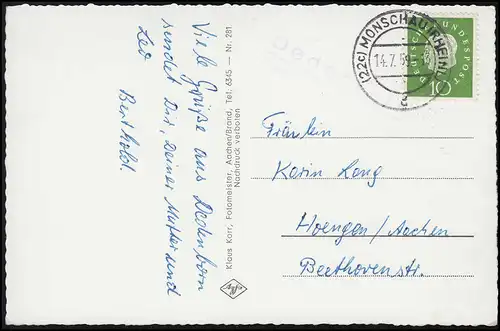 Viele Grüße aus Dedenborn
sendet Dir, Deiner Mutter und
Leo
Berthold.
Klaus Korr, Fotomeister, Aachen/Brand, Tel. 6345 — Nr. 281
Nachdruck verboten
(22c) MONSCHAU (RHEINL)
14.7.59
c
DEUTSCHE BUNDESPOST
10
Fräulein
Karin Lang
Hoengen/Aachen
Beethovenstr.